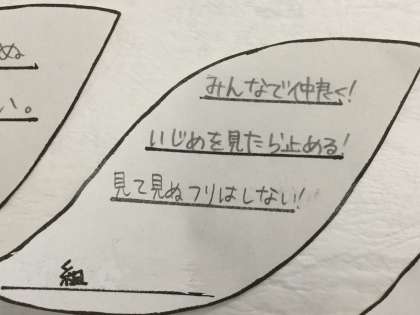 ぬ
い。
みんなで仲良く!
いじめを見たら止める!
見て見ぬフリはしない!
組